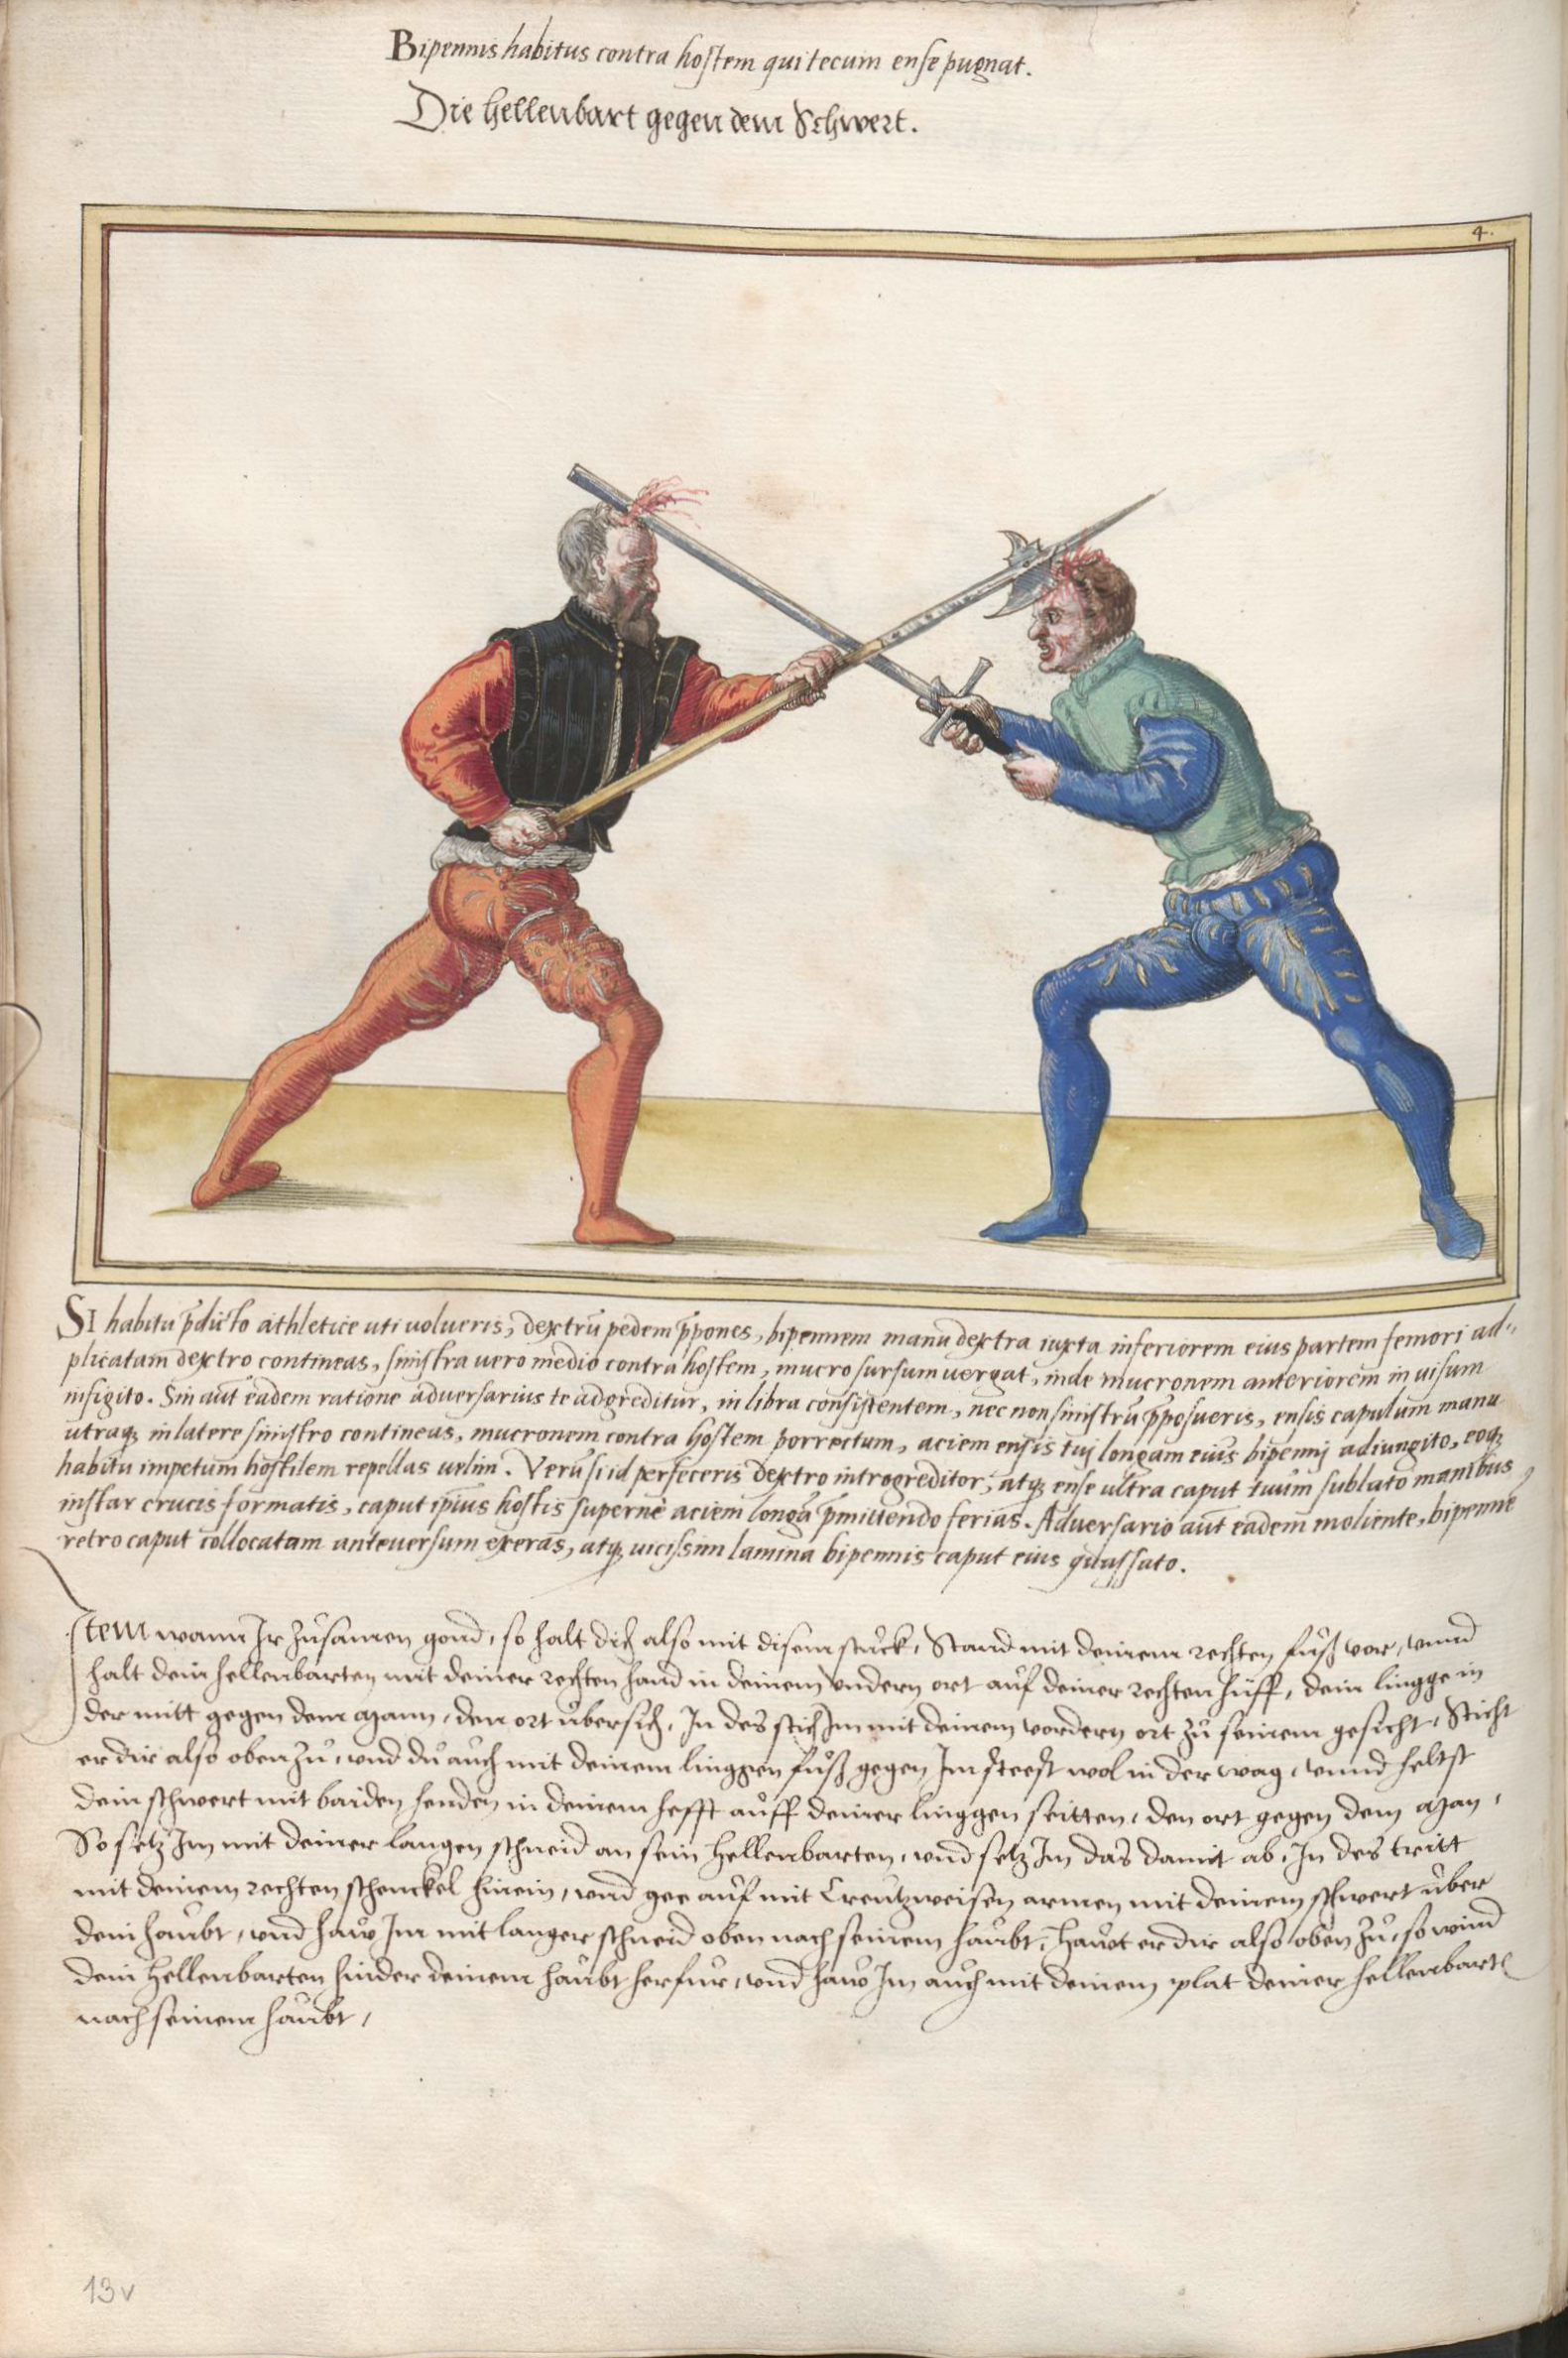 Bipennis habitus contra hostem qui tecum ense pugnat.
Die hellenbart gegen dem Schwert.
4.
SI habitu p̄dicto athletice uti volueris, dextrū pedem p̄pones, bipennem manu dextra iuxta inferiorem eius partem femori ad-
plicatam dextro contineas, sinistra vero medio contra hostem, mucro sursum vergat, inde mucronem anteriorem in visum
infigito. Sin aut̄ eadem ratione adversarius te adgreditur, in libra consistentem, nec non sinistrū p̄posueris, ensis capulum manu
utraq; in latere sinistro contineas, mucronem contra hostem porrectum, aciem ensis tuj longam eius bipennj adiungito, eoq;
habitu impetum hostilem repellas velim. Verū si id perfeceris dextro introgreditor, atq; ense ultra caput tuum sublato manibus
instar crucis formatis, caput ipsius hostis supernè aciem longā p̄mittendo ferias. Adversario aut̄ eadem moliente, bipenne
retro caput collocatam anteversum exeras, atq; vicissim lamina bipennis caput eius quassato.
Item wann Ir zůsamen gond, so halt dich also mit disem stuck, Stand mit deinem rechten fůß vor, vnnd
halt dein hellenbarten mit deiner rechten hand in deinem vndern ort auf deiner rechten hüff, dein lingge in
der mitt gegen dem mann, den ort übersich, In des stich Im mit deinem vordern ort zů seinem gesicht, Sticht
er dir also oben zů, vnd du auch mit deinem linggen fůß gegen Im steest wol in der wag, vnnd heltst
dein schwert mit baiden henden in deinem hefft auff deiner linggen seitten, den ort gegen dem man,
So setz Im mit deiner langen schneid an sein hellenbarten, vnd setz Im das damit ab, In des tritt
mit deinem rechten schenckel hinein, vnd gee auf mit Creutzweisen armen mit deinem schwert über
dein haubt, vnd haw Im mit langer schneid oben nach seinem haubt, hawt er dir also oben zů, so wind
dein hellenbarten hinder deinem haubt herfur, vnd haw Im auch mit deinem plat deiner hellenbartē
nach seinem haubt,
13v